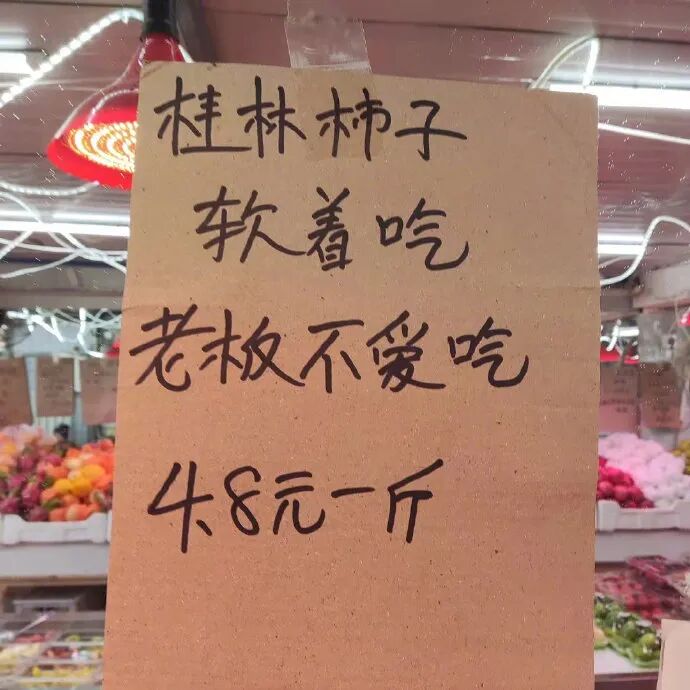 桂林柿子
软着吃
老板不爱吃
4.8元一斤